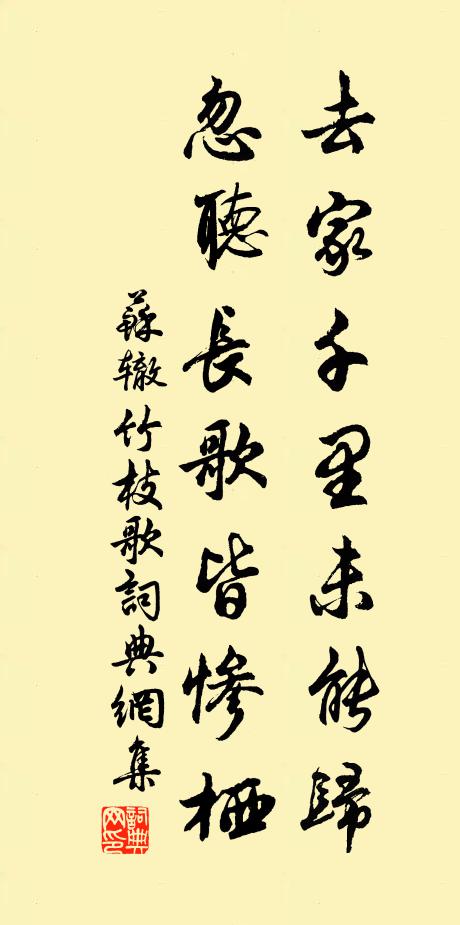 去家千里未能歸
忽聽長歌皆慘栖
蘇辙竹枝歌詞典網集
詞典网印